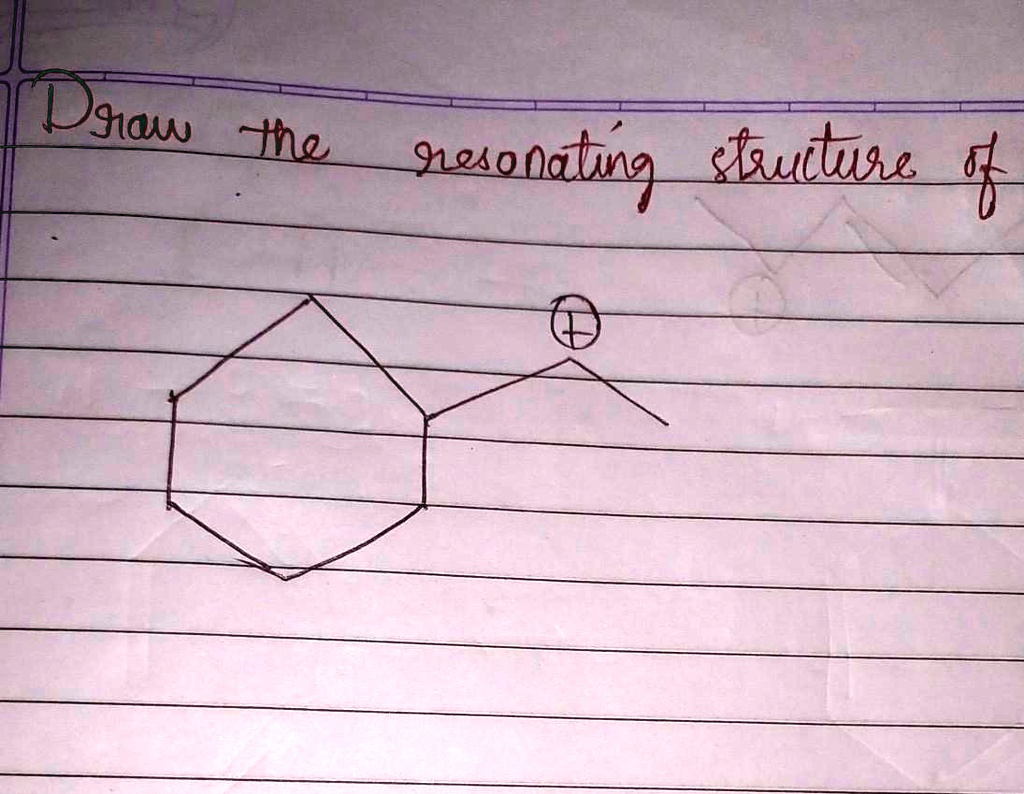 Draw the resonating structure of
⊕